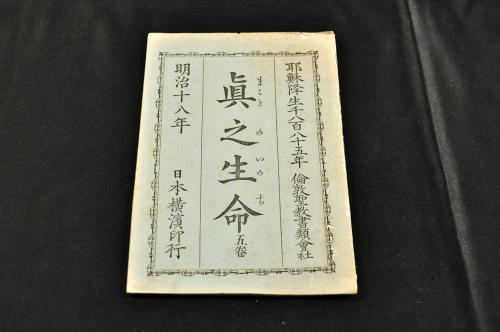 耶穌降生千八百八十五年 倫敦聖教書類會社
眞之生命 五卷
まこと の いのち
明治十八年 日本橫濱印行